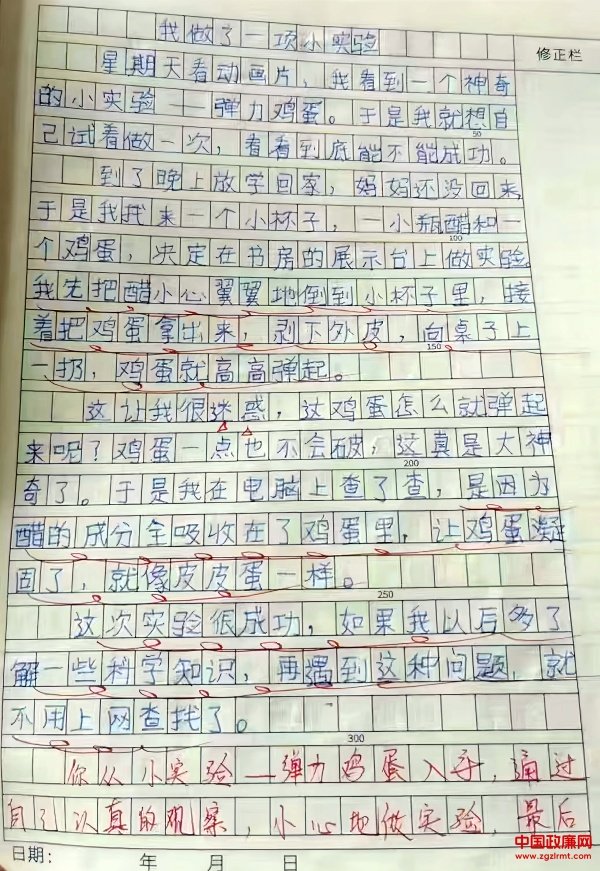 我做了一项小实验
修正栏
星期天看动画片，我看到一个神奇
的小实验——弹力鸡蛋。于是我就想自
50
己试着做一次，看看到底能不能成功。
到了晚上放学回家，妈妈还没回来，
于是我找来一个小杯子，一小瓶醋和一
100
个鸡蛋，决定在书房的展示台上做实验。
我先把醋小心翼翼地倒到小杯子里，接
着把鸡蛋拿出来，剥下外皮，向桌子上
150
一扔，鸡蛋就高高弹起。
这让我很迷惑，这鸡蛋怎么就弹起
来呢？鸡蛋一点也不会破，这真是大神
200
奇了。于是我在电脑上查了查，是因为
醋的成分全吸收在了鸡蛋里，让鸡蛋凝
固了，就像皮皮蛋一样。
250
这次实验很成功，如果我以后多了
解一些科学知识，再遇到这种问题，就
不用上网查找了。
300
你从小实验——弹力鸡蛋入手，通过
自己认真的观察，小心地做实验，最后
日期： 年 月 日
中国政廉网
www.zgzlrmt.com